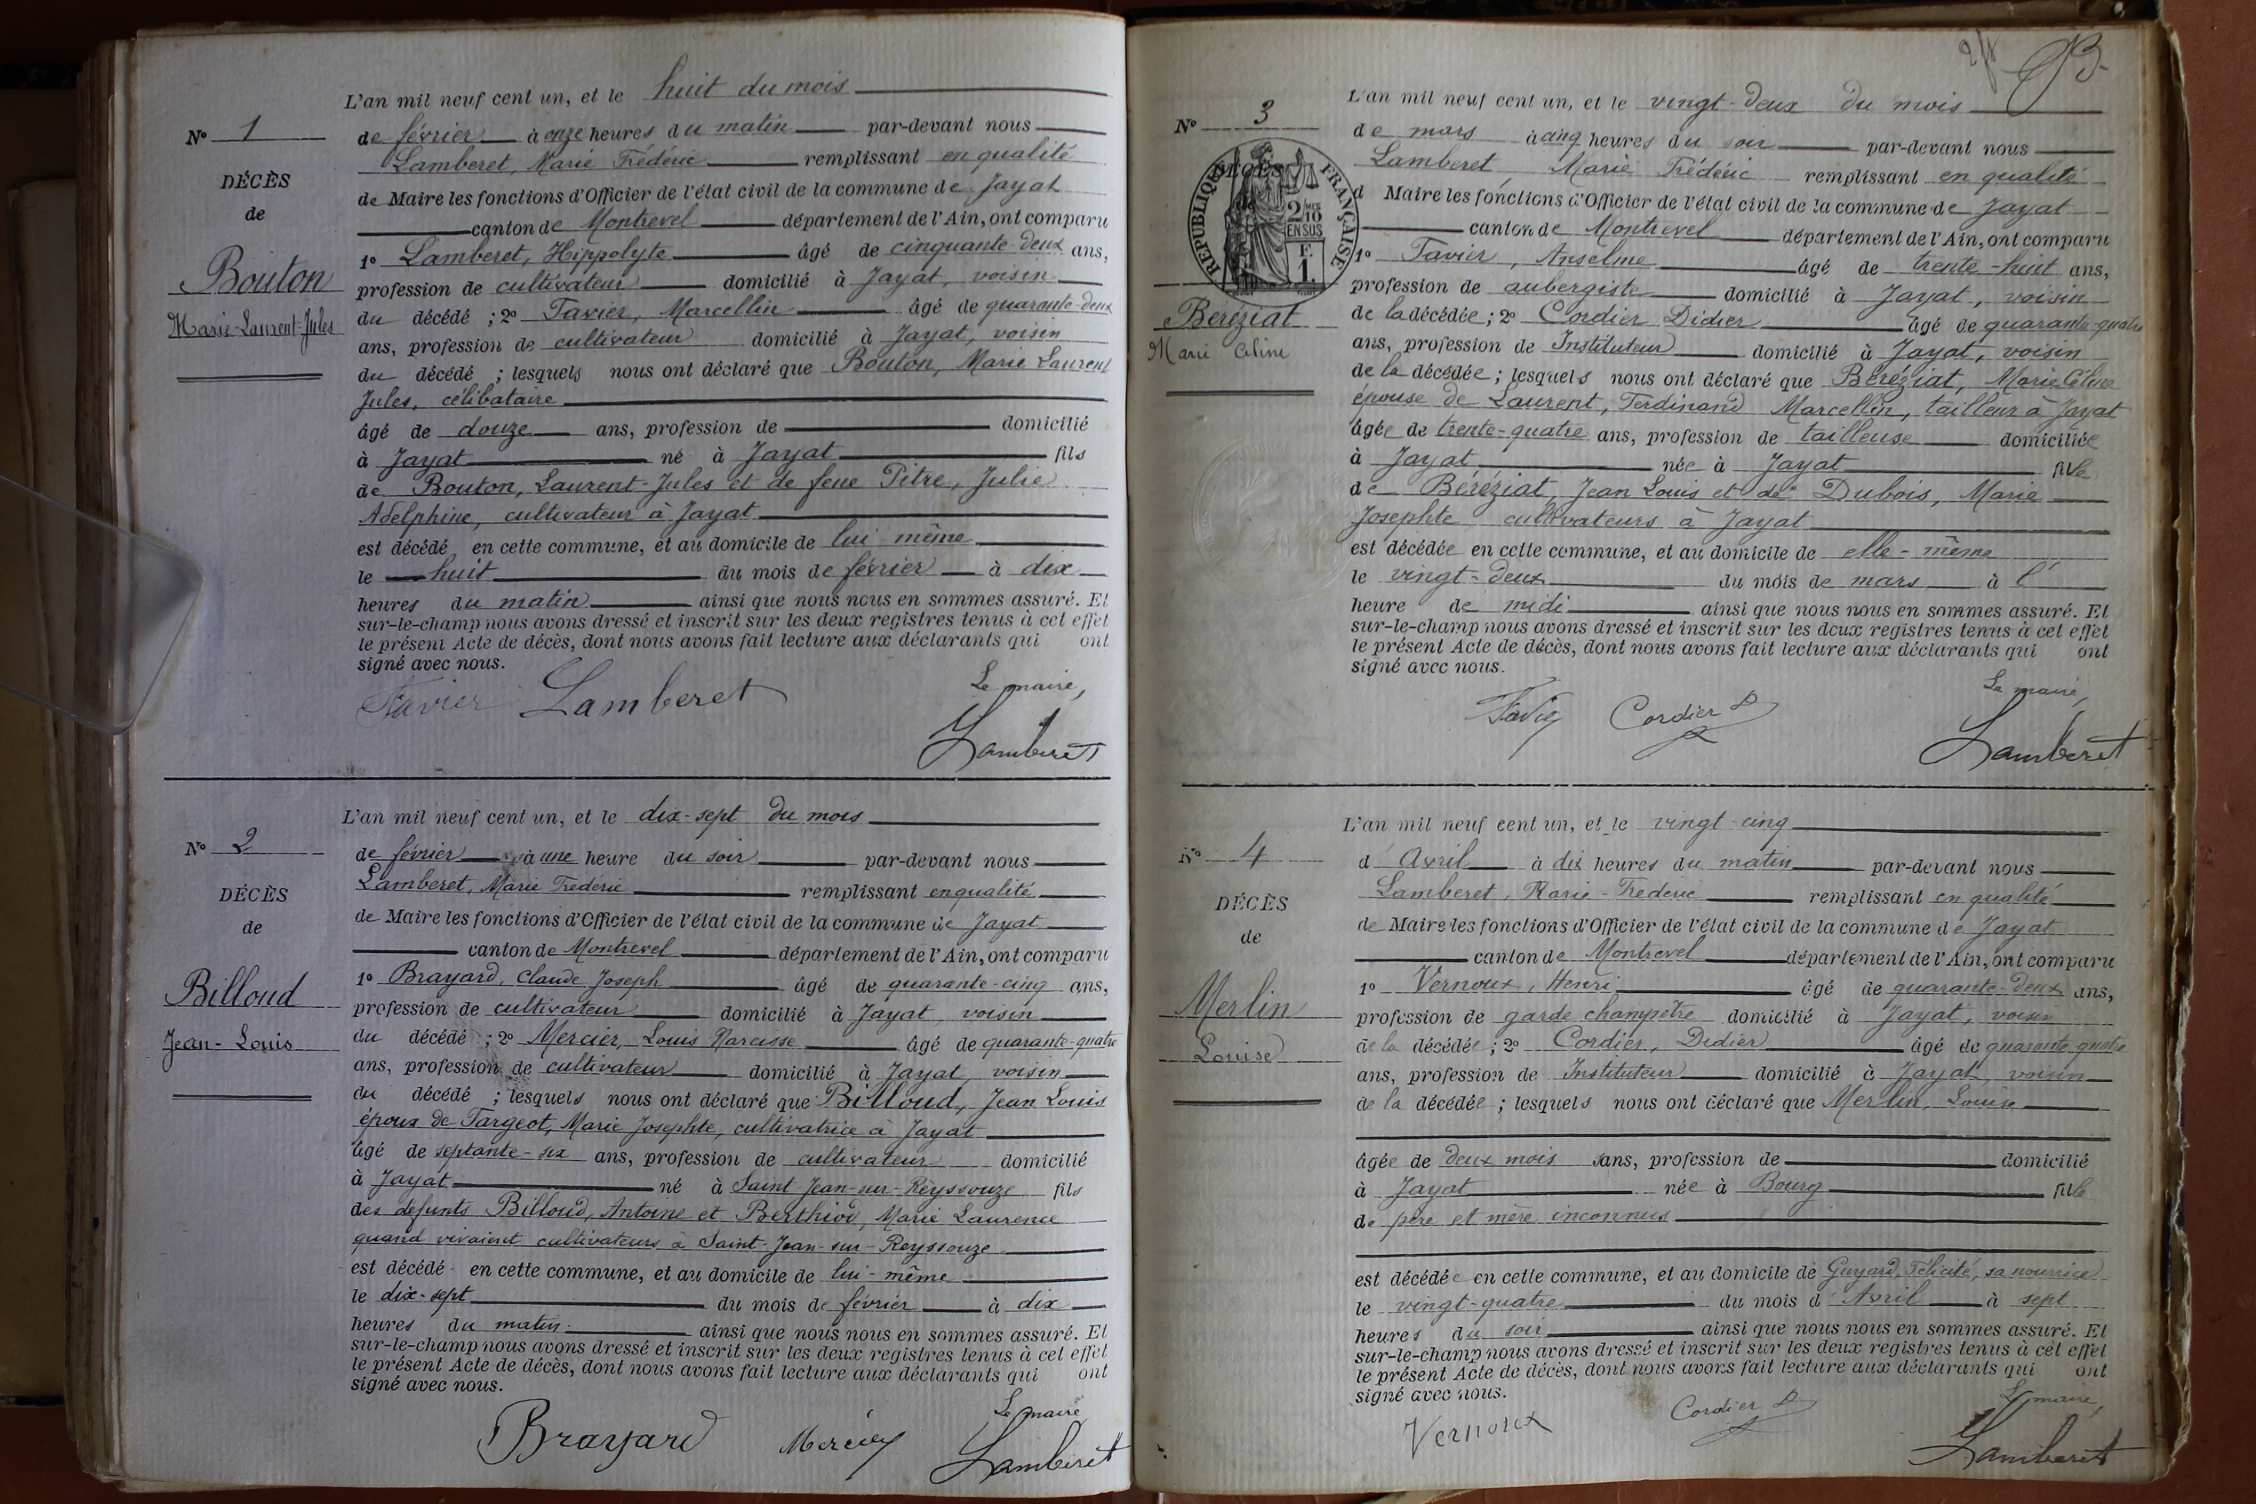 N° 1
DÉCÈS
de
Bouton
Marie-Laurent-Jules
L'an mil neuf cent un, et le huit du mois
de février à onze heures du matin par-devant nous
Lamberet, Marie Frédéric remplissant en qualité
de Maire les fonctions d'Officier de l'état civil de la commune de Jayat
canton de Montrevel département de l'Ain, ont comparu
1° Lamberet, Hippolyte âgé de cinquante-deux ans,
profession de cultivateur domicilié à Jayat, voisin
du décédé ; 2° Favier, Marcellin âgé de quarante-deux
ans, profession de cultivateur domicilié à Jayat, voisin
du décédé ; lesquels nous ont déclaré que Bouton, Marie Laurent
Jules, célibataire
âgé de douze ans, profession de domicilié
à Jayat né à Jayat fils
de Bouton, Laurent-Jules et de feue Pitre, Julie
Adelphine, cultivateur à Jayat
est décédé en cette commune, et au domicile de lui-même
le huit du mois de février à dix
heures du matin ainsi que nous nous en sommes assuré. Et
sur-le-champ nous avons dressé et inscrit sur les deux registres tenus à cet effet
le présent Acte de décès, dont nous avons fait lecture aux déclarants qui ont
signé avec nous.
Le maire,
Favier Lamberet
Lamberet
N° 2
DÉCÈS
de
Billoud
Jean-Louis
L'an mil neuf cent un, et le dix-sept du mois
de février à une heure du soir par-devant nous
Lamberet, Marie Frédéric remplissant en qualité
de Maire les fonctions d'Officier de l'état civil de la commune de Jayat
canton de Montrevel département de l'Ain, ont comparu
1° Brayard, Claude Joseph âgé de quarante-cinq ans,
profession de cultivateur domicilié à Jayat, voisin
du décédé ; 2° Mercier, Louis Narcisse âgé de quarante-quatre
ans, profession de cultivateur domicilié à Jayat, voisin
du décédé ; lesquels nous ont déclaré que Billoud, Jean Louis
époux de Fargeot, Marie Josephte, cultivatrice à Jayat
âgé de septante-six ans, profession de cultivateur domicilié
à Jayat né à Saint Jean-sur-Reyssouze fils
des défunts Billoud, Antoine et Berthiod, Marie Laurence
quand vivaient cultivateurs à Saint-Jean-sur-Reyssouze
est décédé en cette commune, et au domicile de lui-même
le dix-sept du mois de février à dix
heures du matin ainsi que nous nous en sommes assuré. Et
sur-le-champ nous avons dressé et inscrit sur les deux registres tenus à cet effet
le présent Acte de décès, dont nous avons fait lecture aux déclarants qui ont
signé avec nous.
Le maire
Brayard Mercier Lamberet
N° 3
DÉCÈS
RÉPUBLIQUE FRANÇAISE
2/10 MES
EN SUS
F.
1.
Beréziat
Marie Céline
L'an mil neuf cent un, et le vingt-deux du mois
de mars à cinq heures du soir par-devant nous
Lamberet, Marie Frédéric remplissant en qualité
d Maire les fonctions d'Officier de l'état civil de la commune de Jayat
canton de Montrevel département de l'Ain, ont comparu
1° Favier, Anselme âgé de trente-huit ans,
profession de aubergiste domicilié à Jayat, voisin
de la décédée ; 2° Cordier Didier âgé de quarante-quatre
ans, profession de Instituteur domicilié à Jayat, voisin
de la décédée ; lesquels nous ont déclaré que Beréziat, Marie Céline
épouse de Laurent, Ferdinand Marcellin, tailleur à Jayat
âgée de trente-quatre ans, profession de tailleuse domiciliée
à Jayat née à Jayat fille
de Beréziat, Jean Louis et de Dubois, Marie
Josephte cultivateurs à Jayat
est décédée en cette commune, et au domicile de elle-même
le vingt-deux du mois de mars à l'
heure de midi ainsi que nous nous en sommes assuré. Et
sur-le-champ nous avons dressé et inscrit sur les deux registres tenus à cet effet
le présent Acte de décès, dont nous avons fait lecture aux déclarants qui ont
signé avec nous.
Le maire,
Favier Cordier D
Lamberet
N° 4
DÉCÈS
de
Merlin
Louise
L'an mil neuf cent un, et le vingt-cinq
d'Avril à dix heures du matin par-devant nous
Lamberet, Marie-Frédéric remplissant en qualité
de Maire les fonctions d'Officier de l'état civil de la commune de Jayat
canton de Montrevel département de l'Ain, ont comparu
1° Vernoux, Henri âgé de quarante-deux ans,
profession de garde champêtre domicilié à Jayat, voisin
de la décédée ; 2° Cordier, Didier âgé de quarante quatre
ans, profession de Instituteur domicilié à Jayat, voisin
de la décédée ; lesquels nous ont déclaré que Merlin, Louise
âgée de deux mois sans, profession de domicilié
à Jayat née à Bourg fille
de père et mère inconnus
est décédée en cette commune, et au domicile de Guyard, Félicité, sa nourrice
le vingt-quatre du mois d'Avril à sept
heures du soir ainsi que nous nous en sommes assuré. Et
sur-le-champ nous avons dressé et inscrit sur les deux registres tenus à cet effet
le présent Acte de décès, dont nous avons fait lecture aux déclarants qui ont
signé avec nous.
Le maire,
Vernoux Cordier D
Lamberet